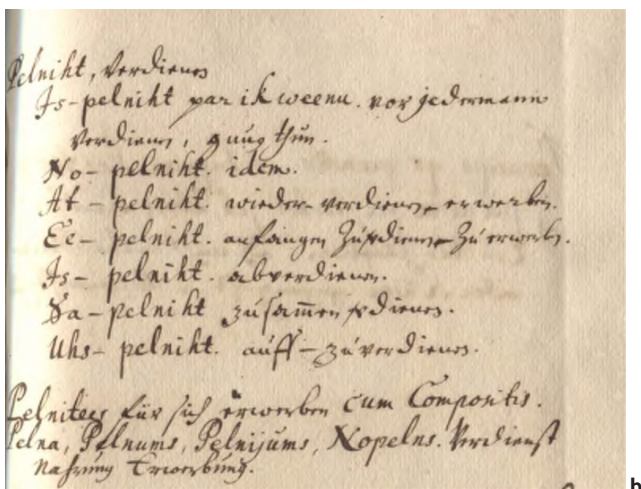 Pelniht, verdienen
Js-pelniht par ik weenu. vor jedermann
verdienen, gnug thun.
No-pelniht. idem.
At-pelniht. wieder-verdienen, erwerben.
Ee-pelniht. anfangen zu verdienen, zu erwerben.
Js-pelniht. abverdienen.
Sa-pelniht zusammen verdienen.
Uhs-pelniht. auff-zuverdienen.
Pelnitees für sich erwerben cum Compositis.
Pelna, Pelnums, Pelnijums, Nopelns. Verdienst
Nahrung Erwerbung.
b